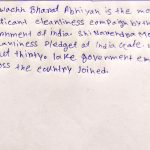 Swachh Bharat Abhiyan is the mo
ficant cleanliness campaign by th
rnment of India. Shri Narendra Mo
eanliness Pledge at India Gate. 
ut thirty lake government em
oss the country joined.